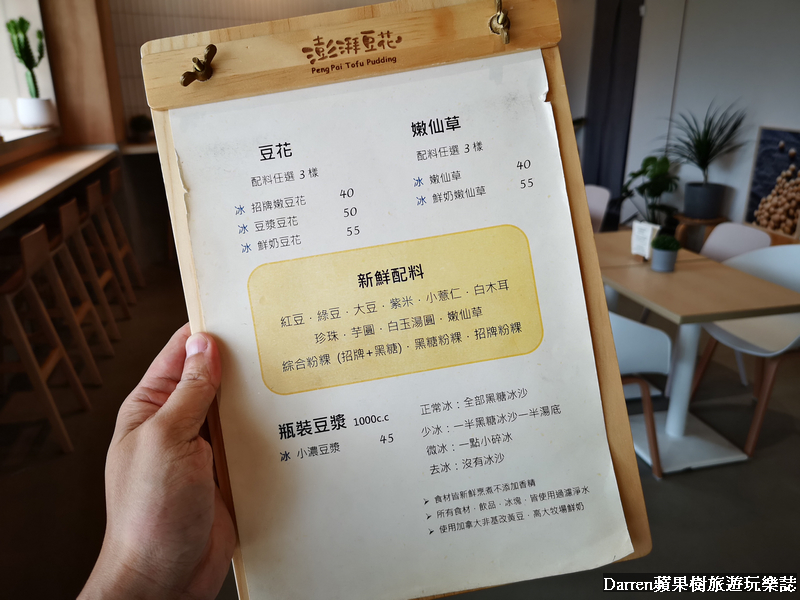 澎湃豆花
PengPai Tofu Pudding
豆花
配料任選 3 樣
冰 招牌嫩豆花 40
冰 豆漿豆花 50
冰 鮮奶豆花 55
嫩仙草
配料任選 3 樣
冰 嫩仙草 40
冰 鮮奶嫩仙草 55
新鮮配料
紅豆．綠豆．大豆．紫米．小薏仁．白木耳
珍珠．芋圓．白玉湯圓．嫩仙草
綜合粉粿 (招牌+黑糖)．黑糖粉粿．招牌粉粿
瓶裝豆漿 1000c.c
冰 小濃豆漿 45
正常冰：全部黑糖冰沙
少冰：一半黑糖冰沙一半湯底
微冰：一點小碎冰
去冰：沒有冰沙
➢ 食材皆新鮮烹煮不添加香精
➢ 所有食材．飲品．冰塊，皆使用過濾淨水
➢ 使用加拿大非基改黃豆．高大牧場鮮奶
Darren蘋果樹旅遊玩樂誌